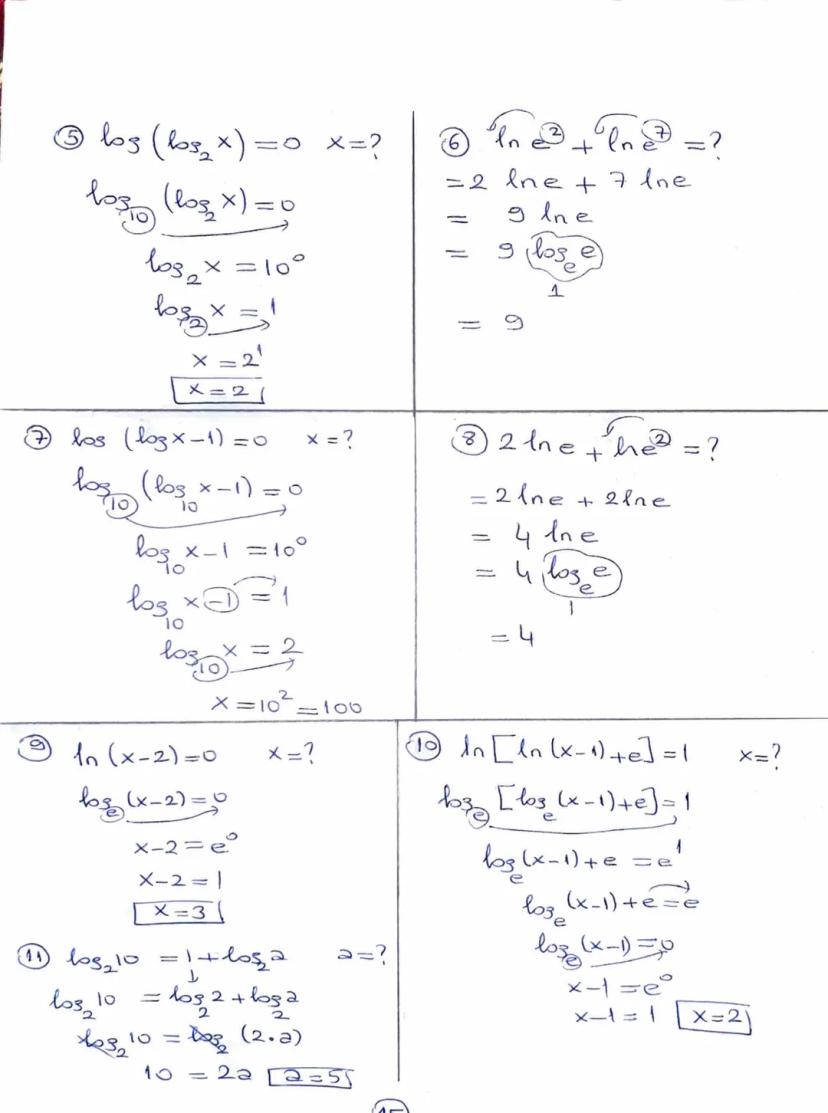 ⑤ log(log₂x)=0 x=?
log₁₀(log₂x)=0
log₂x=10⁰
log₂x=1
x=2¹
x=2
⑥ lne²+lne⁷=?
=2 lne+7 lne
= 9 lne
= 9 logₑe
1
= 9
⑦ log (logx-1)=0 x=?
log₁₀(log₁₀x-1)=0
log₁₀x-1=10⁰
log₁₀x-1=1
log₁₀x=2
x=10²=100
⑧ 2lne+lne²=?
=2lne+2lne
= 4 lne
= 4 logₑe
1
=4
⑨ ln(x-2)=0 x=?
logₑ(x-2)=0
x-2=e⁰
x-2=1
x=3
⑩ ln[ln(x-1)+e]=1 x=?
logₑ[logₑ(x-1)+e]=1
logₑ(x-1)+e=e¹
logₑ(x-1)+e=e
logₑ(x-1)=0
x-1=e⁰
x-1=1 x=2
⑪ log₂10=1+log₂a a=?
log₂10=log₂2+log₂a
log₂10=log₂(2.a)
10=2a a=5